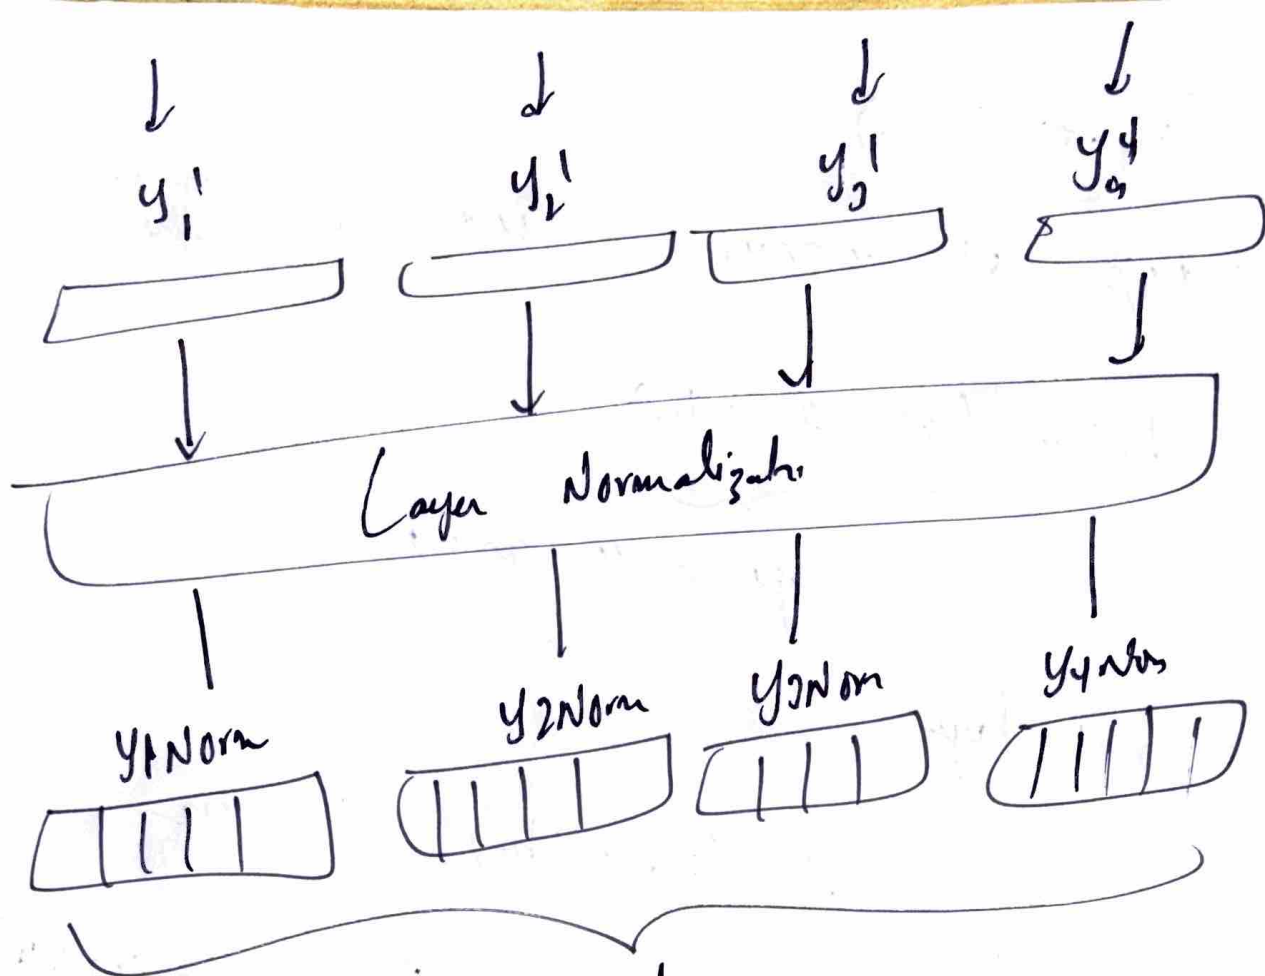 y₁' y₂' y₃' y₄⁴
Layer Normalizati
y1Norm y2Norm y3Norm y4Nom